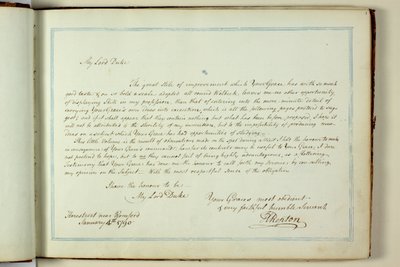 My Lord Duke
The great stile of improvement which Your Grace has with so much
good taste & on so bold a scale, adopted all round Welbeck, leaves me no other opportunity
of displaying Skill in my profession, than that of entering into the more minute detail of
carrying Your Grace's own ideas into execution, which is all the following pages pretend to sug-
gest; and if it shall appear that they contain nothing but what has been before proposed, I hope it
will not be attributed to the sterility of my invention, but to the impossibility of producing new
ideas on a subject which Your Grace has had opportunities of studying.
This little Volume is the result of observations made on the spot during a visit I had the honour to make
in consequence of Your Grace's commands; however its contents may be useful to Your Grace, I dare
not pretend to hope, but to me they cannot fail of being highly advantageous, as
that Your Grace has done me the honour to by
my opinion on the Subject. With the most respectful sense of the obligation
I have the honour to be
My Lord Duke
Your Grace's most obedient
& very faithful humble Servant
H Repton
Harestreet near Romford
January 4th 1790